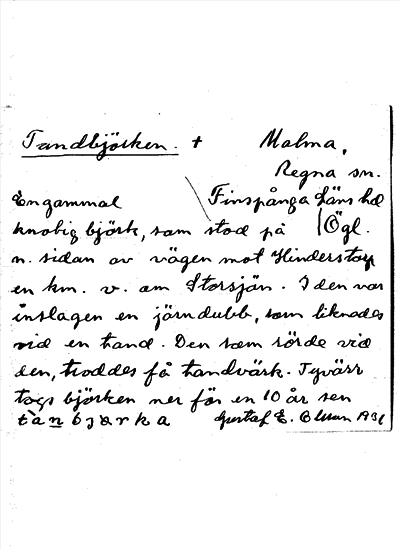 Tandbjörken. + Malma,
Regna sn.
En gammal Finspånga läns hd
knotig björk, som stod på Ögl.
n. sidan av vägen mot Hinderstorp
en km. v. om Storsjön. I den var
inslagen en järndubb, som liknades
vid en tand. Den som rörde vid
den, troddes få tandvärk. Tyvärr
togs björken ner för en 10 år sen
tànbjərka Gustaf E. Olsson 1931